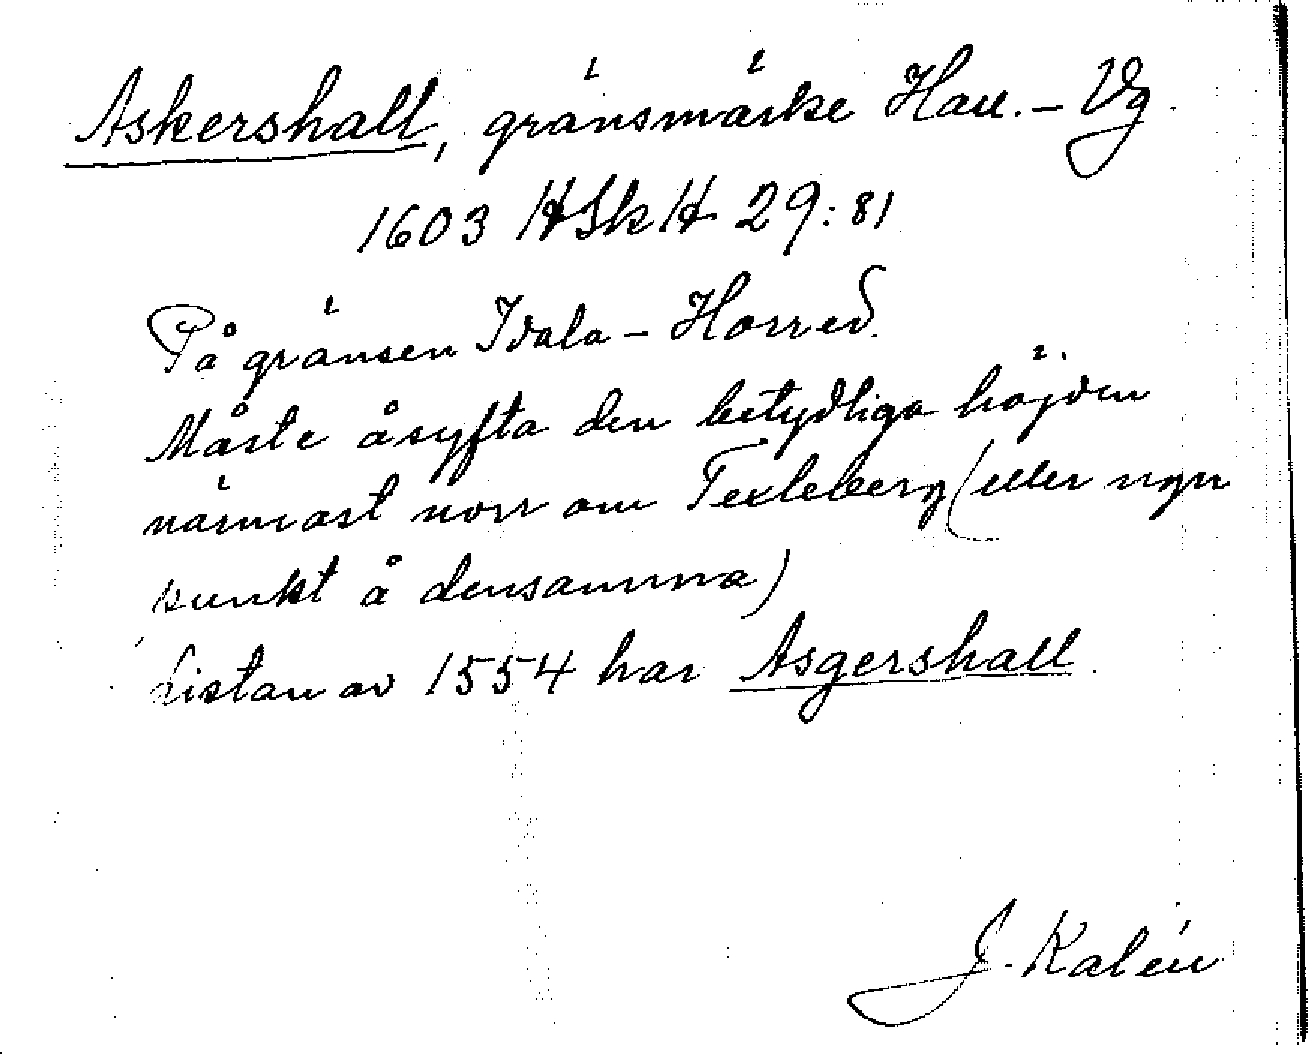 Askershall, gränsmärke Hall. - Vg.
1603 HSkH 29:81
På gränsen Idala - Horred.
Måste åsyfta den betydliga höjden
närmast norr om Texleberg (eller ngn
punkt å densamma)
Listan av 1554 har Asgershall.
J. Kalén